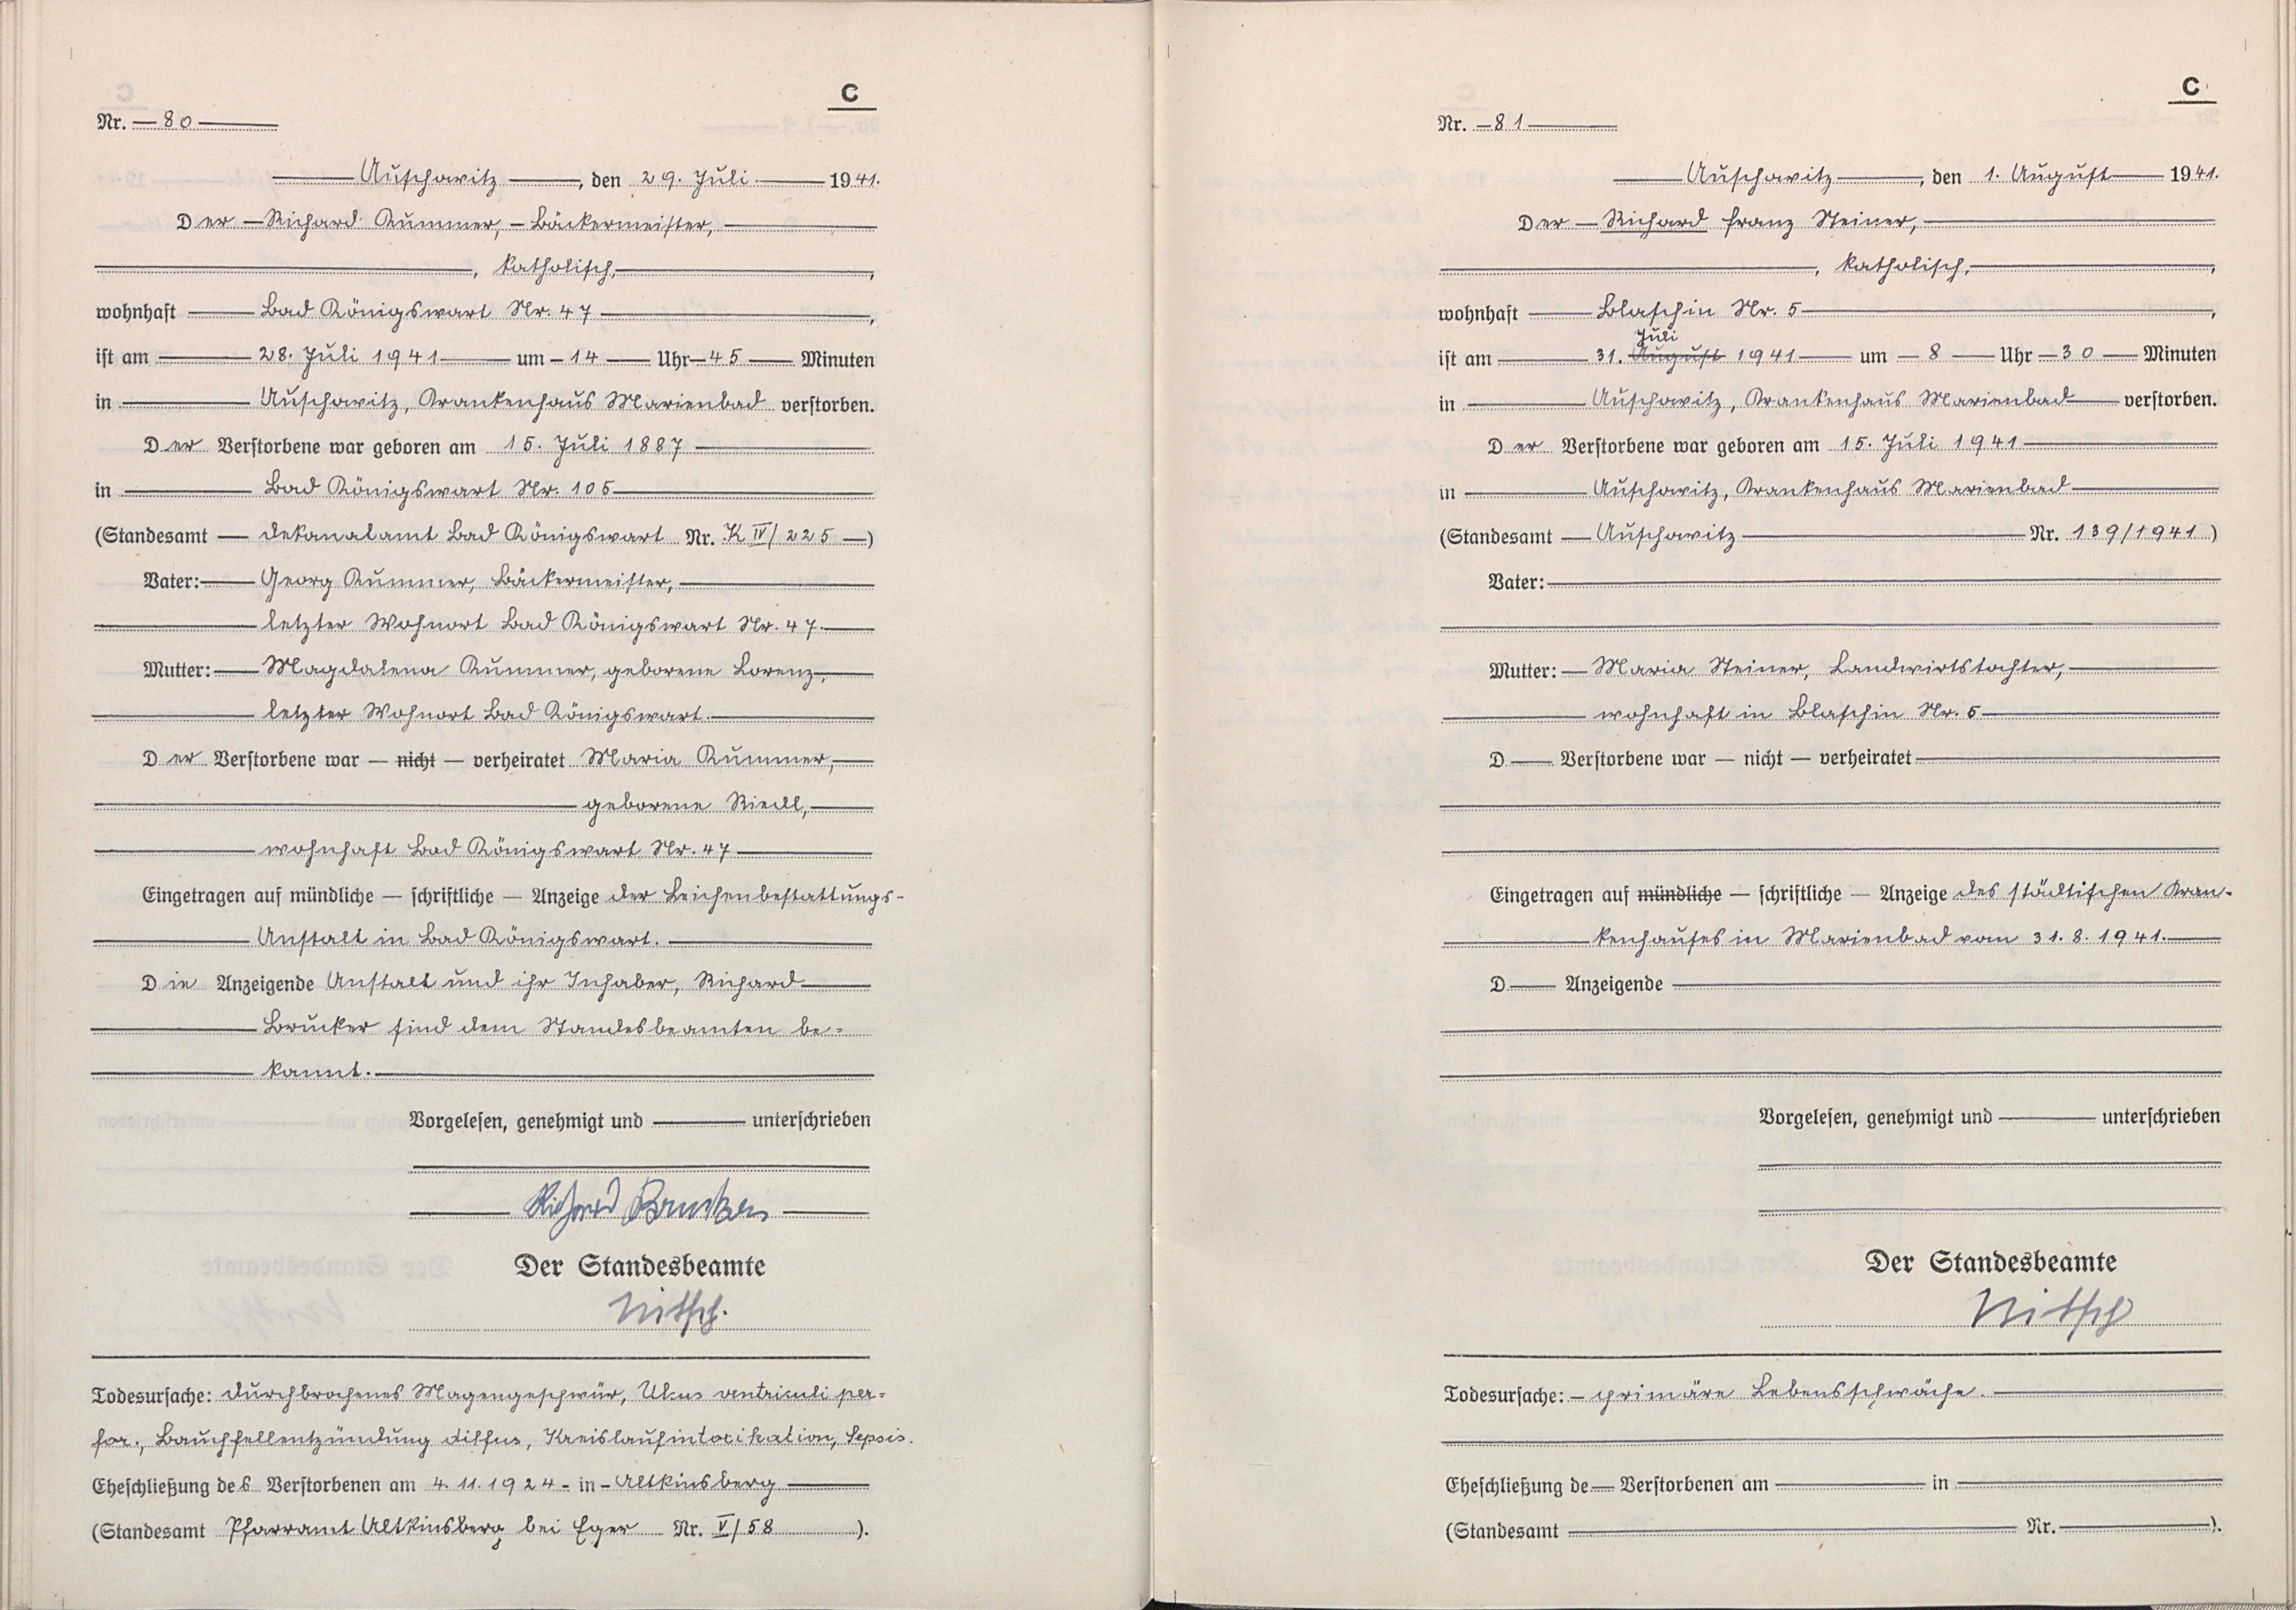 C
Nr. 80
Auschowitz, den 29. Juli 1941.
Der Richard Kummer, Bäckermeister,
, katholisch,
wohnhaft Bad Königswart Nr. 47,
ist am 28. Juli 1941 um 14 Uhr 45 Minuten
in Auschowitz, Krankenhaus Marienbad verstorben.
Der Verstorbene war geboren am 15. Juli 1887
in Bad Königswart Nr. 105
(Standesamt Dekanalamt Bad Königswart Nr. K IV/225)
Vater: Georg Kummer, Bäckermeister,
letzter Wohnort Bad Königswart Nr. 47.
Mutter: Magdalena Kummer, geborene Lorenz,
letzter Wohnort Bad Königswart.
Der Verstorbene war — nicht — verheiratet Maria Kummer,
geborene Riedl,
wohnhaft Bad Königswart Nr. 47
Eingetragen auf mündliche — schriftliche — Anzeige der Leichenbestattungs-
Anstalt in Bad Königswart.
Die Anzeigende Anstalt und ihr Inhaber, Richard
Brucker sind dem Standesbeamten be=
kannt.
Vorgelesen, genehmigt und unterschrieben
Richard Brucker
Der Standesbeamte
Nitsch.
Todesursache: durchbrochenes Magengeschwür, Ulcus ventriculi per=
for., Bauchfellentzündung diffus, Kreislaufintoxikation, Sepsis.
Eheschließung des Verstorbenen am 4.11.1924 - in - Altkinsberg
(Standesamt Pfarramt Altkinsberg bei Eger Nr. V/58).
C
Nr. 81
Auschowitz, den 1. August 1941.
Der Richard Franz Steiner,
, katholisch,
wohnhaft Blaschin Nr. 5,
Juli
ist am 31. August 1941 um 8 Uhr 30 Minuten
in Auschowitz, Krankenhaus Marienbad verstorben.
Der Verstorbene war geboren am 15. Juli 1941
in Auschowitz, Krankenhaus Marienbad
(Standesamt Auschowitz Nr. 139/1941)
Vater:
Mutter: Maria Steiner, Landwirtstochter,
wohnhaft in Blaschin Nr. 5
D Verstorbene war — nicht — verheiratet
Eingetragen auf mündliche — schriftliche — Anzeige des städtischen Kran-
kenhauses in Marienbad vom 31.8.1941.
D Anzeigende
Vorgelesen, genehmigt und unterschrieben
Der Standesbeamte
Nitsch
Todesursache: primäre Lebensschwäche.
Eheschließung de Verstorbenen am in
(Standesamt Nr. ).